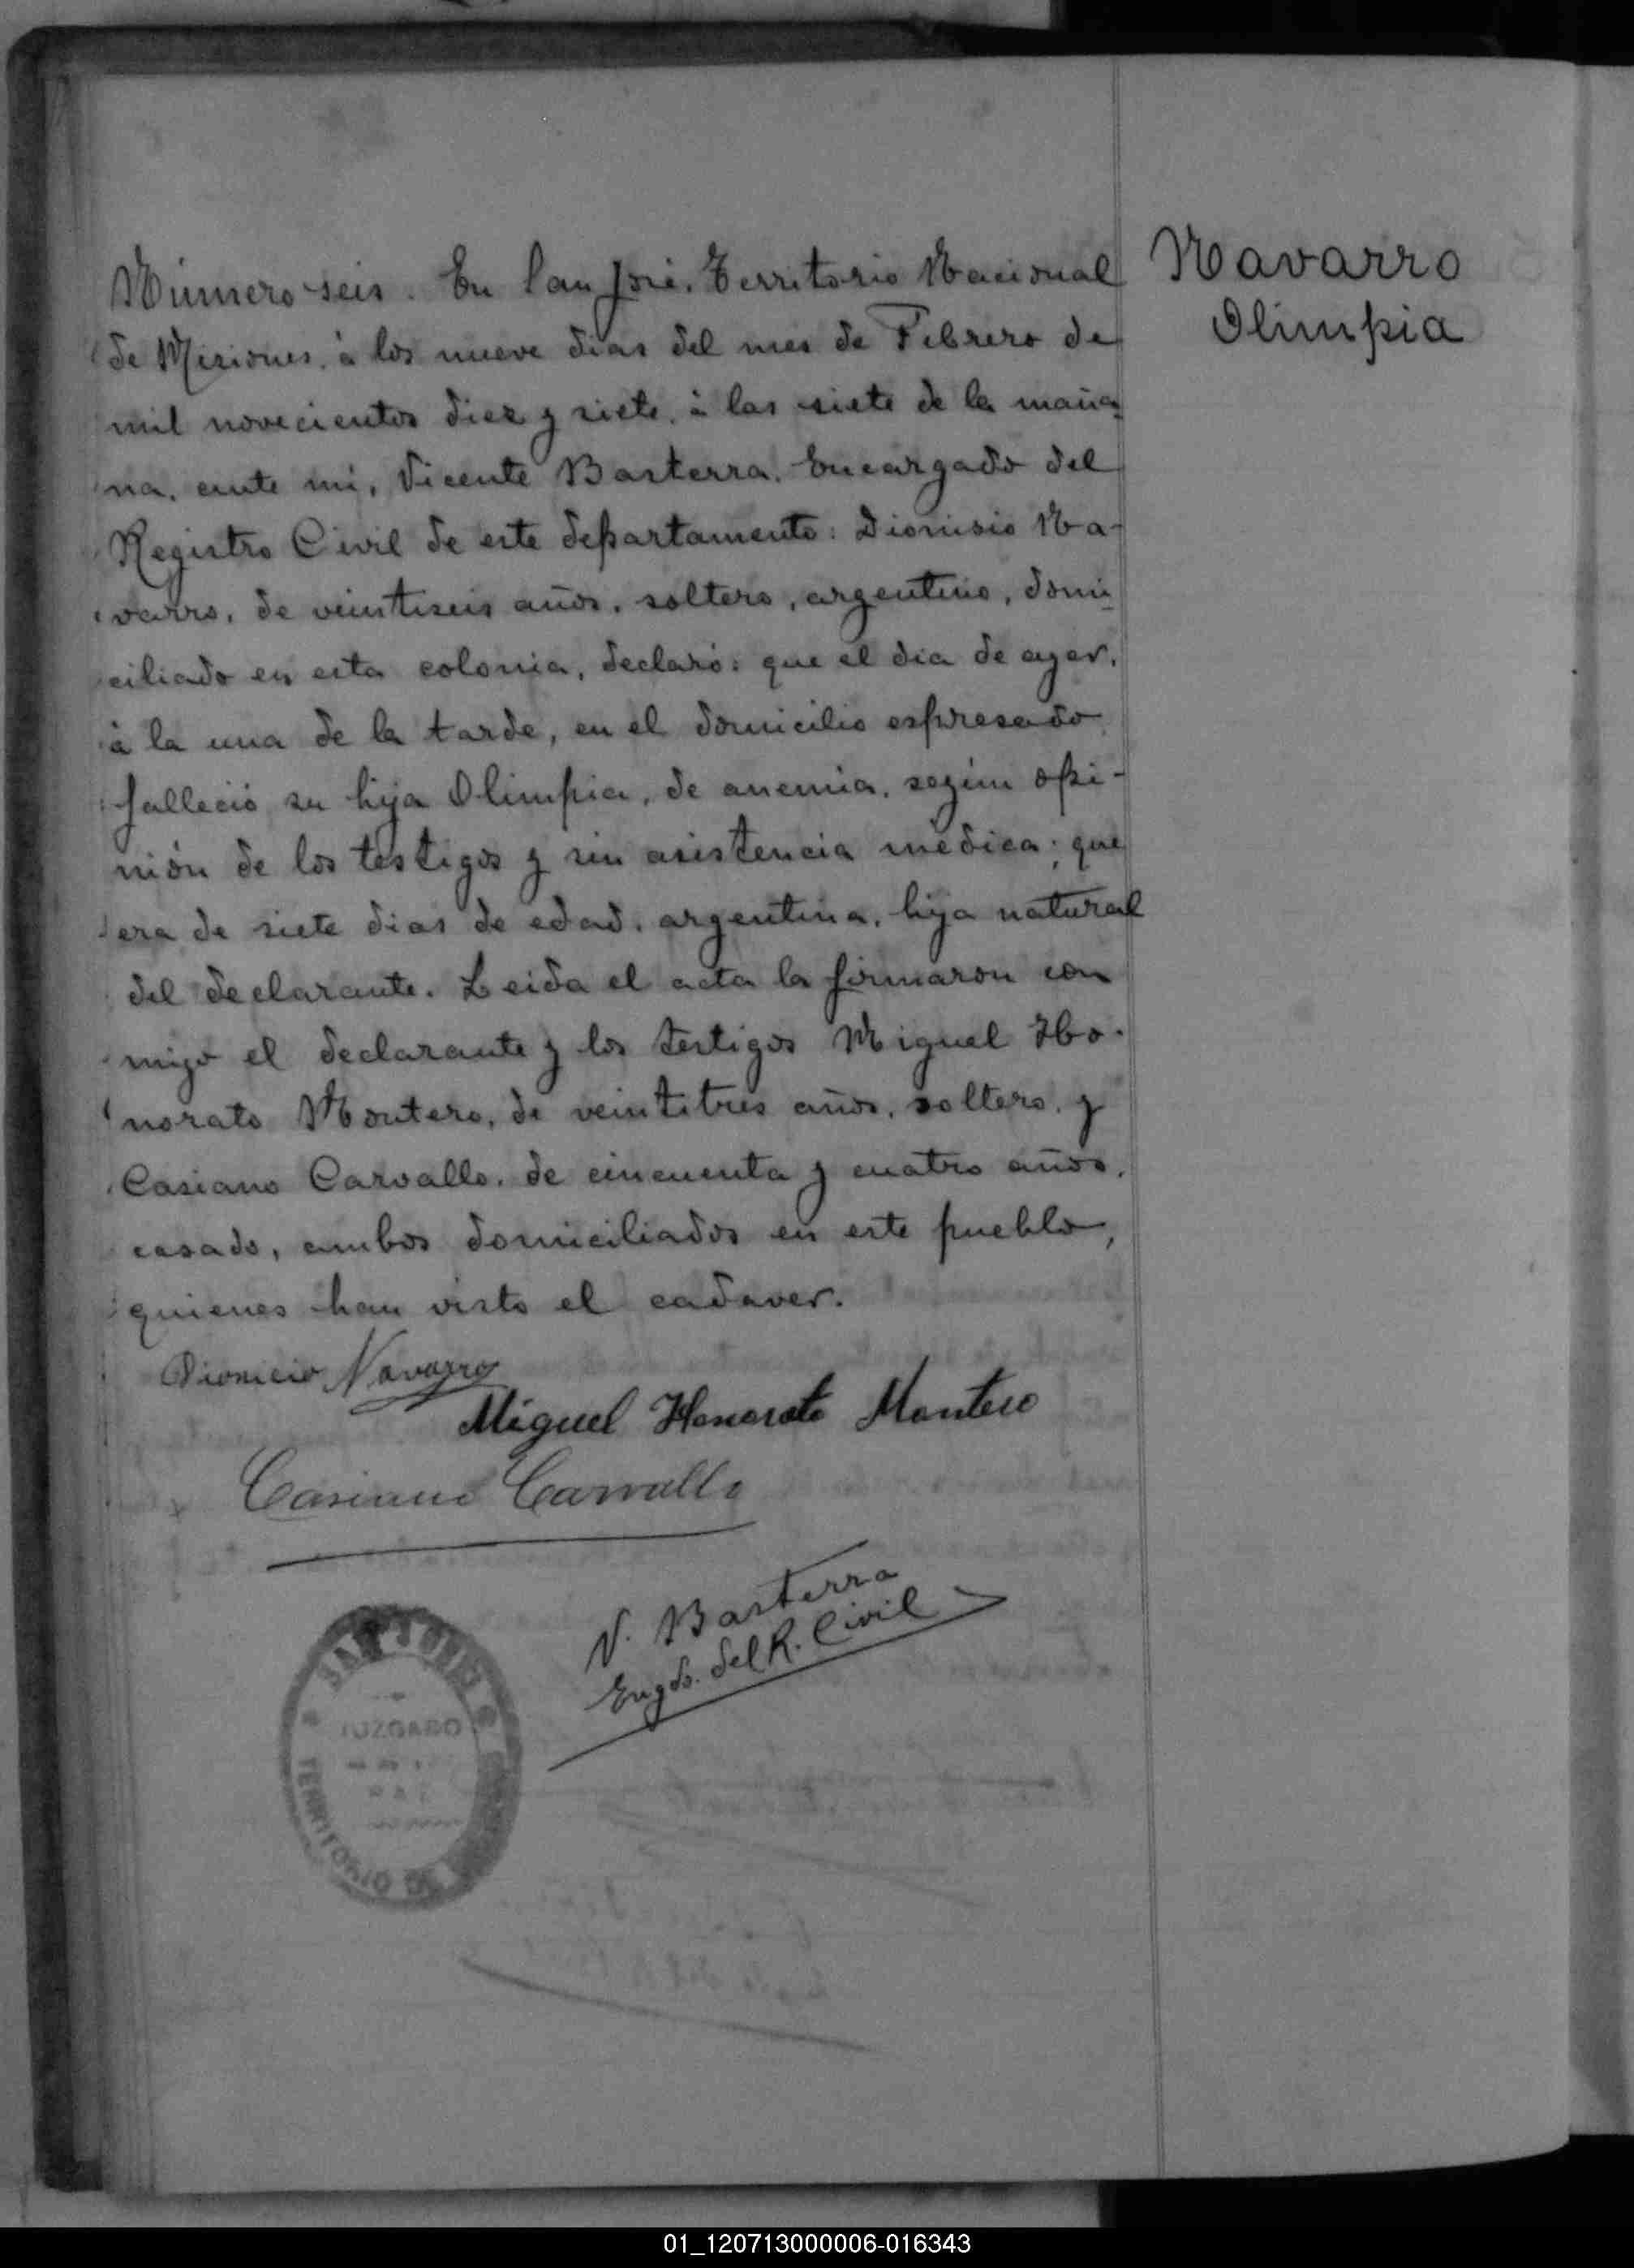 Navarro
Olimpia
Número seis. En San José, Territorio Nacional
de Misiones, à los nueve dias del mes de Febrero de
mil novecientos diez y siete, à las siete de la maña
na, ante mi, Vicente Basterra, Encargado del
Registro Civil de este departamento: Dionisio Na-
varro, de veintiseis años, soltero, argentino, domi
ciliado en esta colonia, declaró: que el dia de ayer,
à la una de la tarde, en el domicilio espresado
falleció su hija Olimpia, de anemia, según opi-
nión de los testigos y sin asistencia mèdica; que
era de siete dias de edad, argentina, hija natural
del declarante. Leida el acta la firmaron con
migo el declarante y los testigos Miguel Ho-
norato Montero, de veintitres años, soltero, y
Casiano Carvallo, de cincuenta y cuatro años,
casado, ambos domiciliados en este pueblo,
quienes han visto el cadaver.
Dionicio Navarro
Miguel Honorato Montero
Casiano Carvallo
V. Basterra
Engdo. del R. Civil
SAN JOSE
JUZGADO
PAZ
TERRITORIO DE
01_120713000006-016343